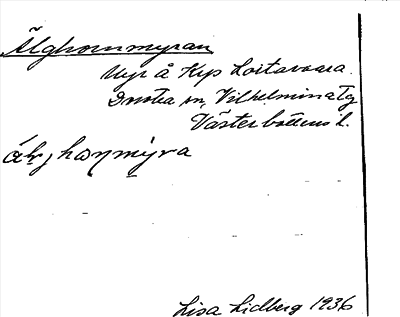 Älghornmyran
Myr å Kxp Loitavaara.
Dorotea sn, Vilhelmina tg
Västerbottens l.
hornmyra
Lisa Lidberg 1936